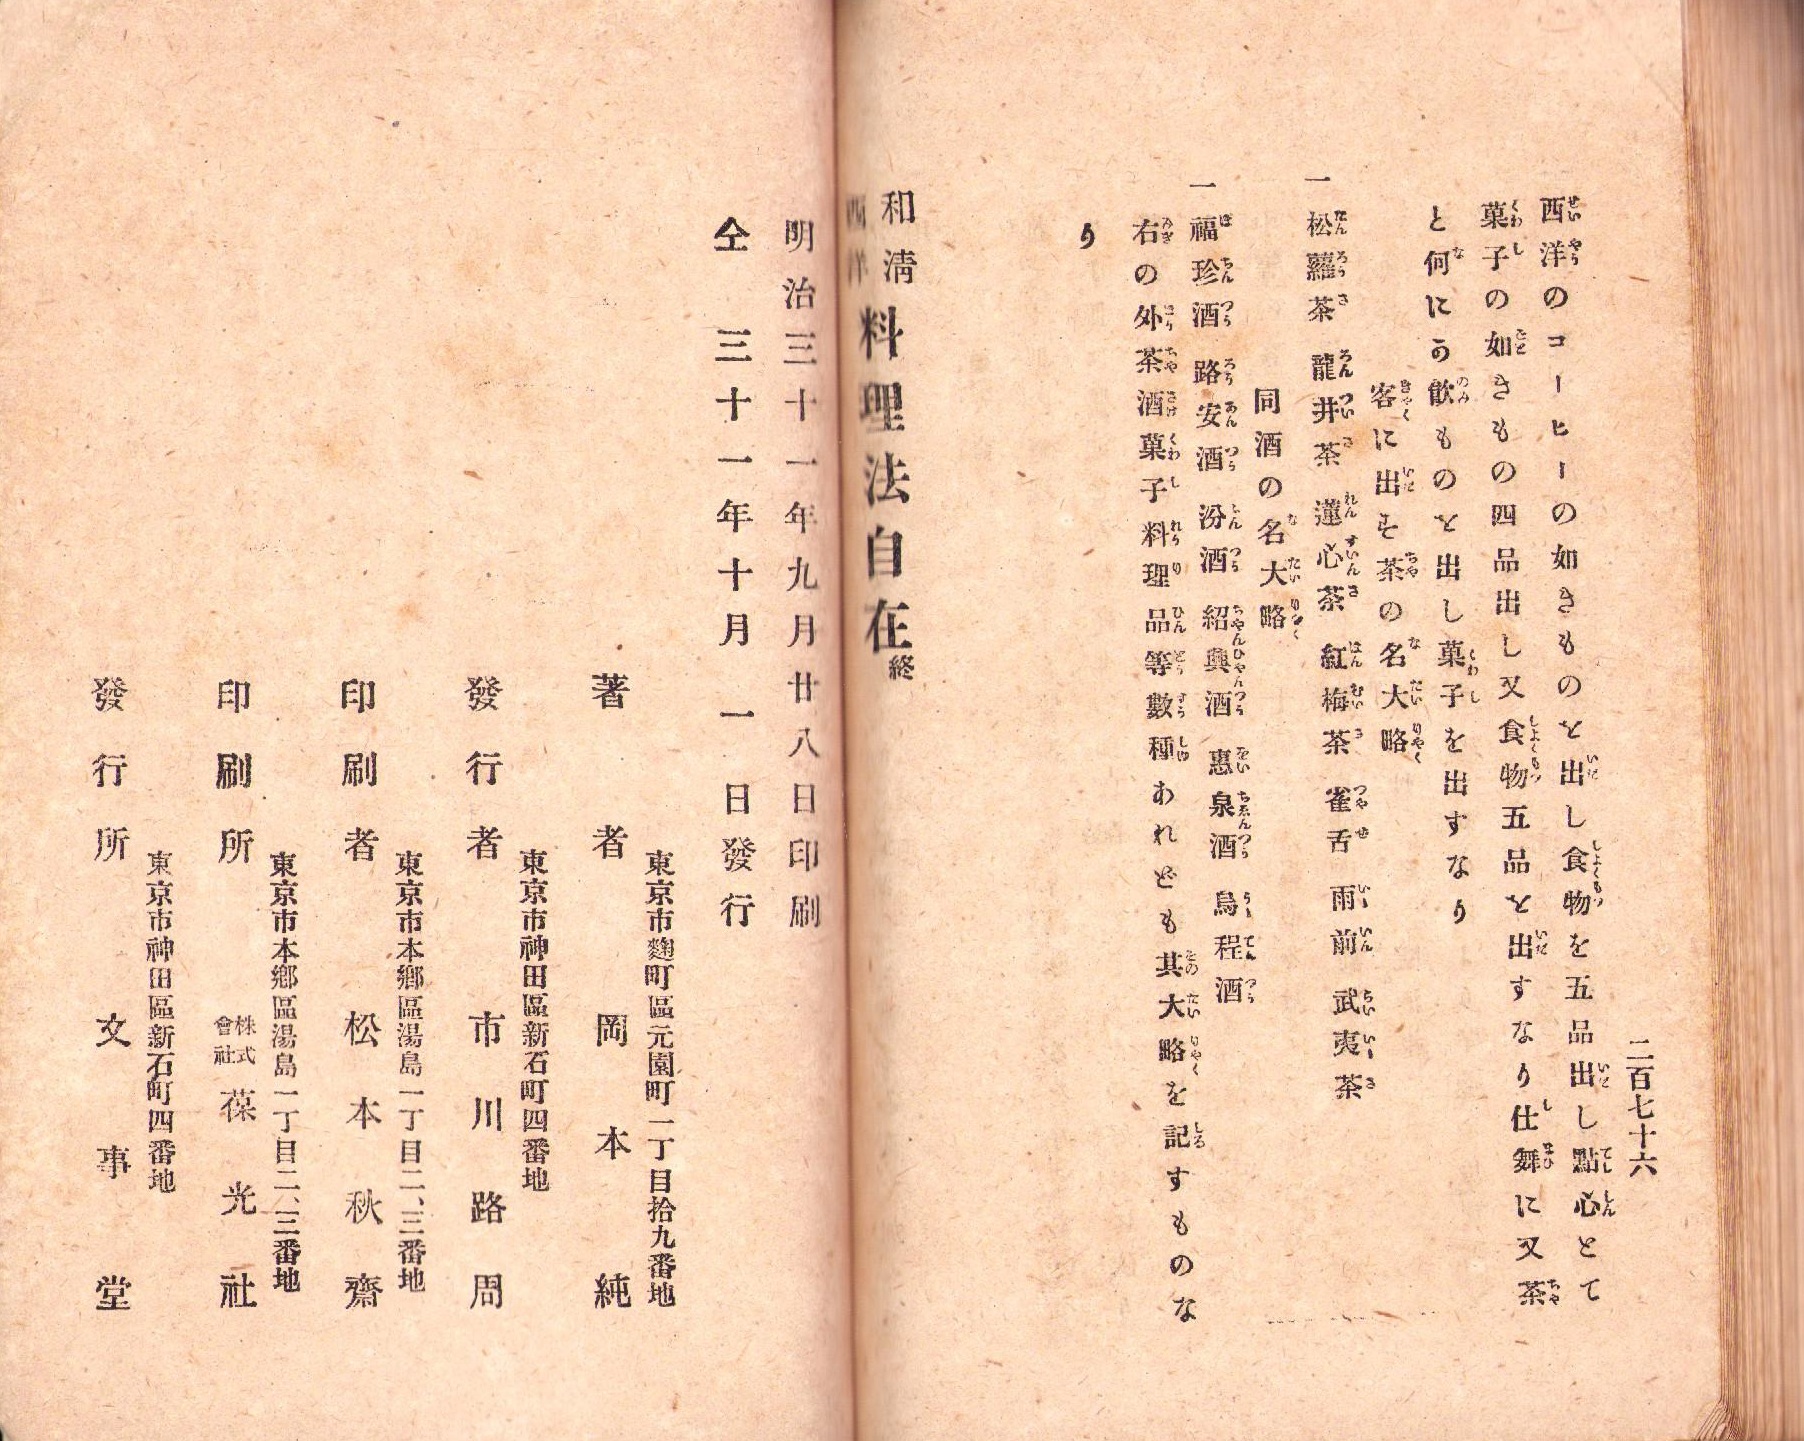 二百七十六
西洋のコーヒーの如きものを出し食物を五品出し點心とて
菓子の如きもの四品出し又食物五品を出すなり仕舞に又茶
と何にか歓ものを出し菓子を出すなり
客に出す茶の名大略
一 松蘿茶 龍井茶 蓮心茶 紅梅茶 雀舌 雨前 武夷茶
同酒の名大略
一 福珍酒 路安酒 汾酒 紹興酒 惠泉酒 烏程酒
右の外茶酒菓子料理品等數種あれども其大略を記すものな
り
和清
西洋 料理法自在 終
明治三十一年九月廿八日印刷
仝 三十一年十月一日發行
東京市麴町區元園町一丁目拾九番地
著者 岡本純
東京市神田區新石町四番地
發行者 市川路周
東京市本鄕區湯島一丁目二、三番地
印刷者 松本秋齋
東京市本鄕區湯島一丁目二、三番地
印刷所 株式會社 葆光社
東京市神田區新石町四番地
發行所 文事堂